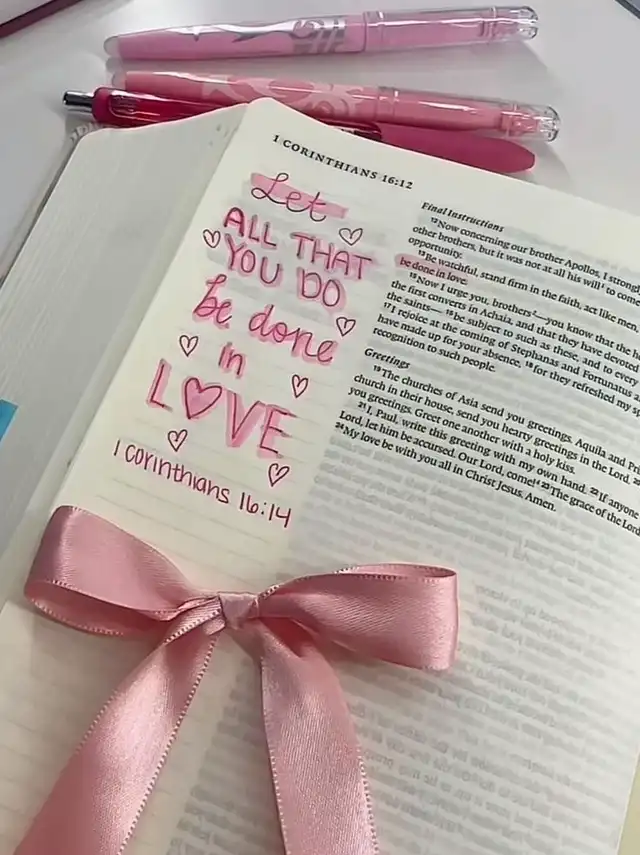 1 CORINTHIANS 16:12
Let
ALL THAT
YOU DO
be done
in
LOVE
1 corinthians 16:14
Final Instructions
12Now concerning our brother Apollos, I strongly
other brothers, but it was not at all his will to
opportunity.
13Be watchful, stand firm in the faith, act like men,
be done in love.
15Now I urge you, brothers—you know that the
the first converts in Achaia, and that they have devoted
the saints— 16be subject to such as these, and to every
17I rejoice at the coming of Stephanas and Fortunatus
have made up for your absence, 18for they refreshed my
recognition to such people.
Greetings
19The churches of Asia send you greetings. Aquila and
church in their house, send you hearty greetings in the Lord.
you greetings. Greet one another with a holy kiss.
21I, Paul, write this greeting with my own hand. 22If anyone
Lord, let him be accursed. Our Lord, come! 23The grace of the Lord
24My love be with you all in Christ Jesus. Amen.